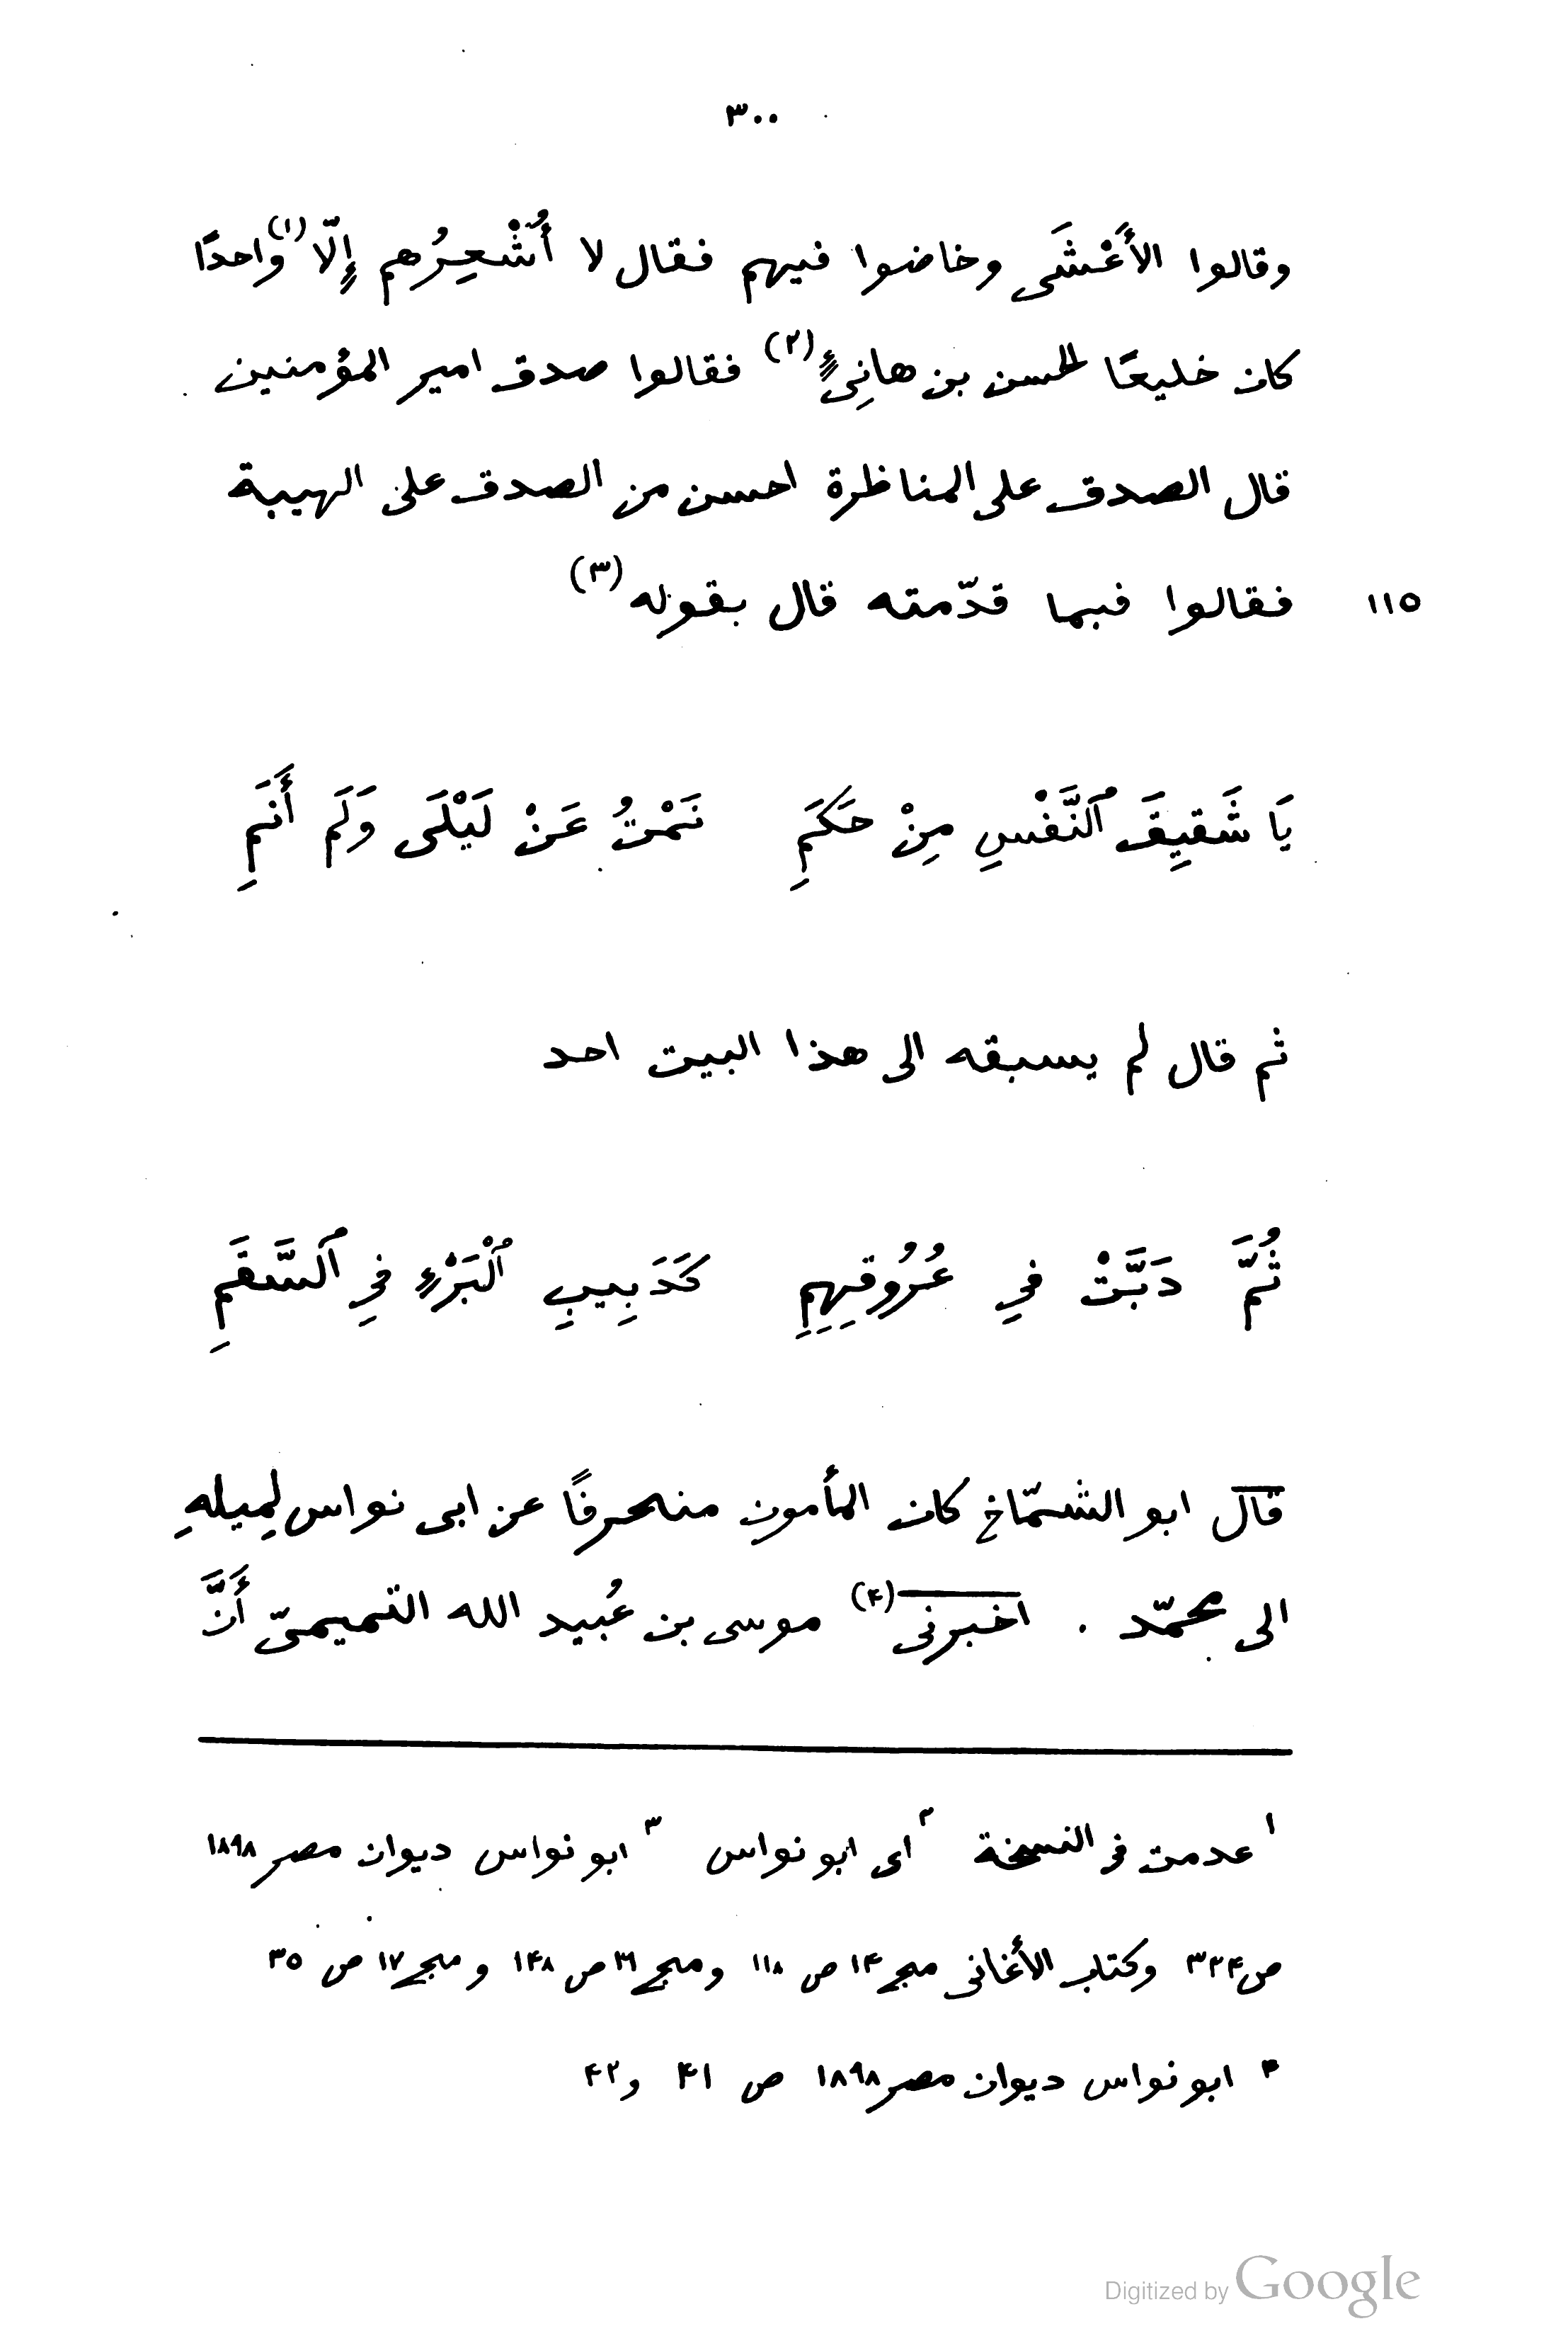 ٣٠٠
وقالوا الأَعْشَى وخاضوا فيهم فقال لا أُشْعِرُهم إِلّا (١) واحدًا
كان خليعًا الحسن بن هانِئٍ (٢) فقالوا صدق امير المؤمنين
قال الصدق على المناظرة احسن من الصدق على الهيبة
١١٥ فقالوا فبما قدّمته قال بقوله (٣)
يَا شَقيِقَ ٱلنَّفْسِ مِنْ حَكَمِ نَمْتُ عَنْ لَيْلَى وَلَم أَنَمِ
ثم قال لم يسبقه الى هذا البيت احد
ثُمَّ دَبَّتْ فيِ عُرُوقِهِمِ كَدَبِيبِ ٱلْبَرْءِ فيِ ٱلسَّقَمِ
قال ابو الشمّاخ كان المأمون منحرفًا عن ابى نواس لِميلهِ
الى محمّد . اخبرنى (۴) موسى بن عُبيد الله التميمىّ أَنَّ
١ عدمت فى النسخة ٢ اى ابو نواس ٣ ابو نواس ديوان مصر ١٨٩٨
ص ٣٢۴ وكتاب الأغانى مجـ ١۴ ص ١١٨ ومجـ ١٦ ص ١۴٨ ومجـ ١٧ ص ٣٥
۴ ابو نواس ديوان مصر ١٨٩٨ ص ۴١ و۴٢
Digitized by Google